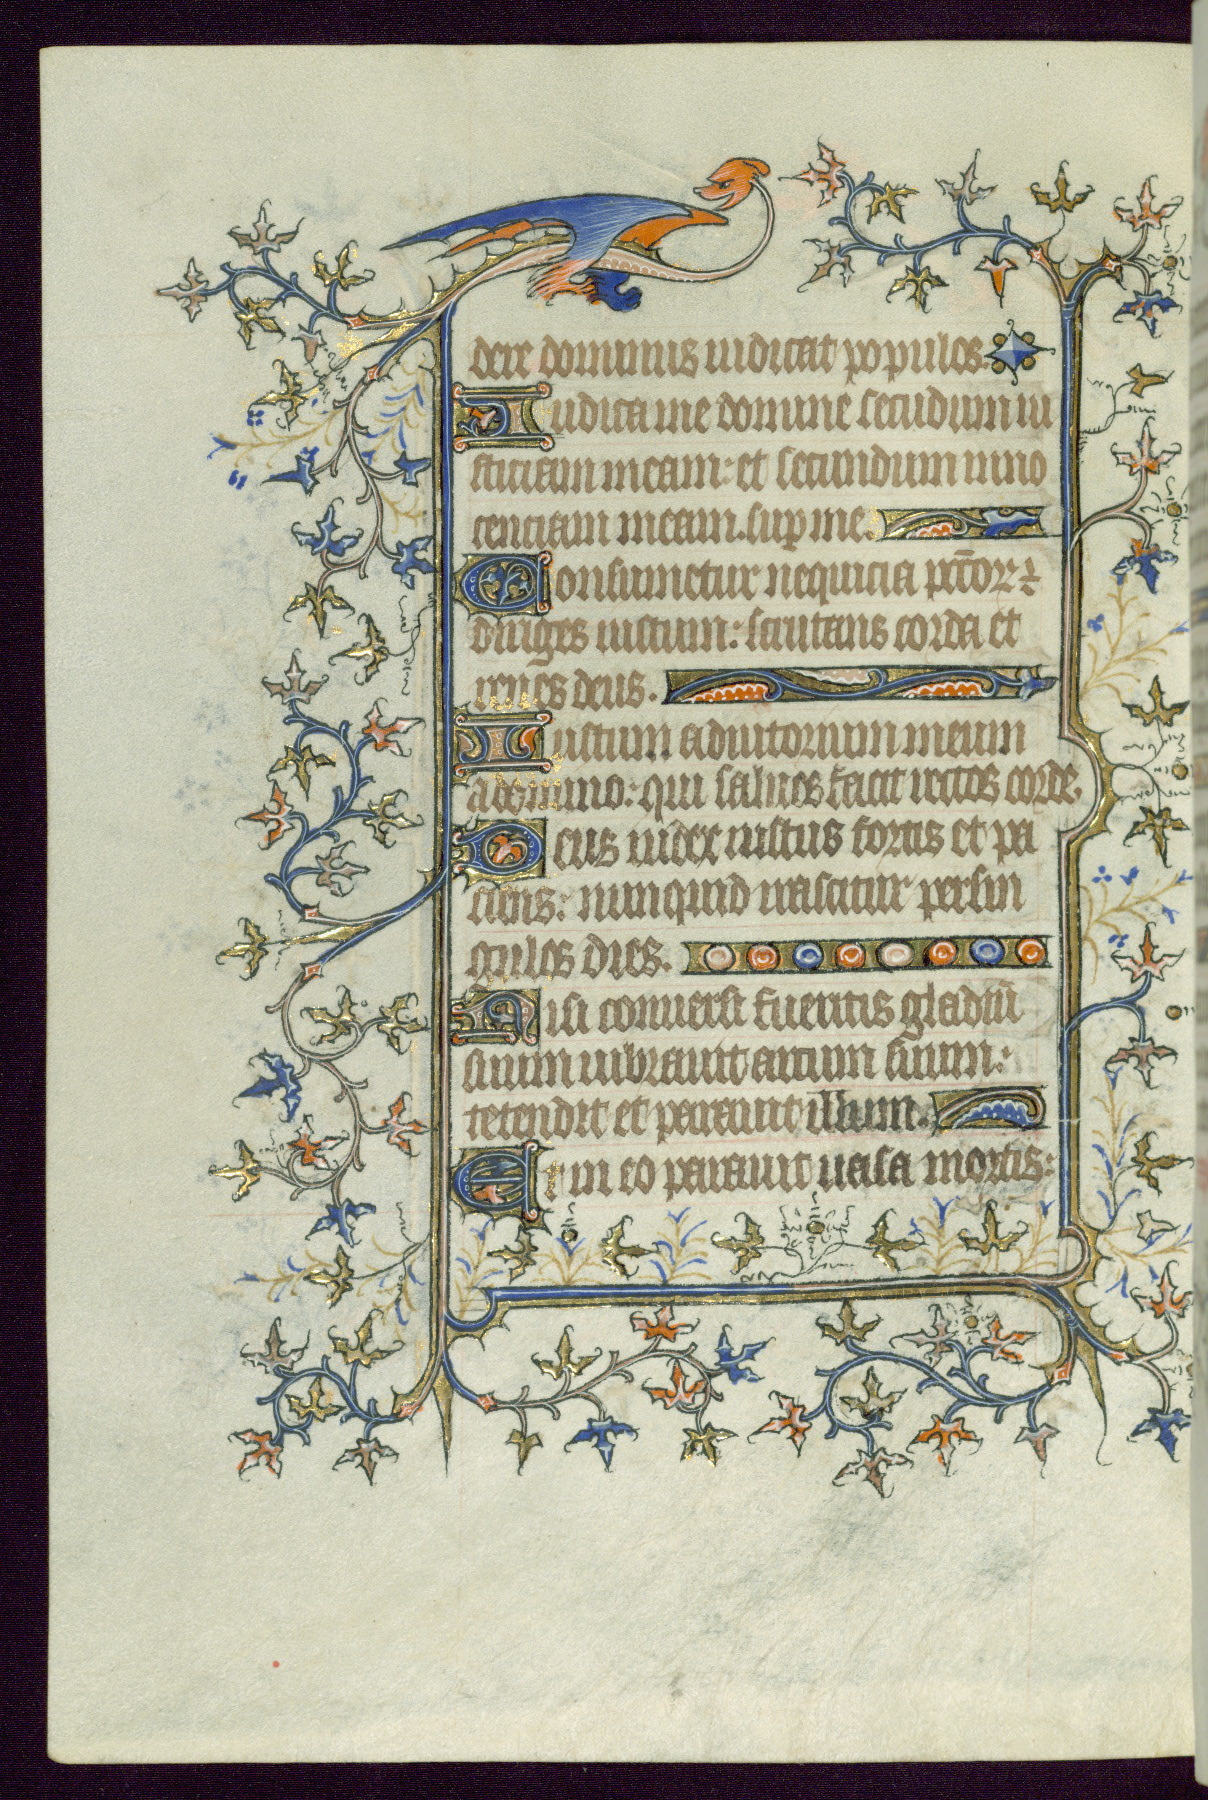 dere dominus iudicat populos.
Iudica me domine secūdum iu
sticiam meam: et secundum inno
centiam meam sup me.
Consumetur nequicia pctōr ⁊
diriges iustum: scrutans corda et
renes deus.
Iustum adiutorium meum
a domino: qui saluos facit rectos corde.
Deus iudex iustus fortis et pa
ciens: nunquid irascitur persin
gulos dies.
Nisi conuersi fueritis gladiū
suum uibrauit arcum suum:
tetendit et parauit illum.
Et in eo parauit uasa mortis: